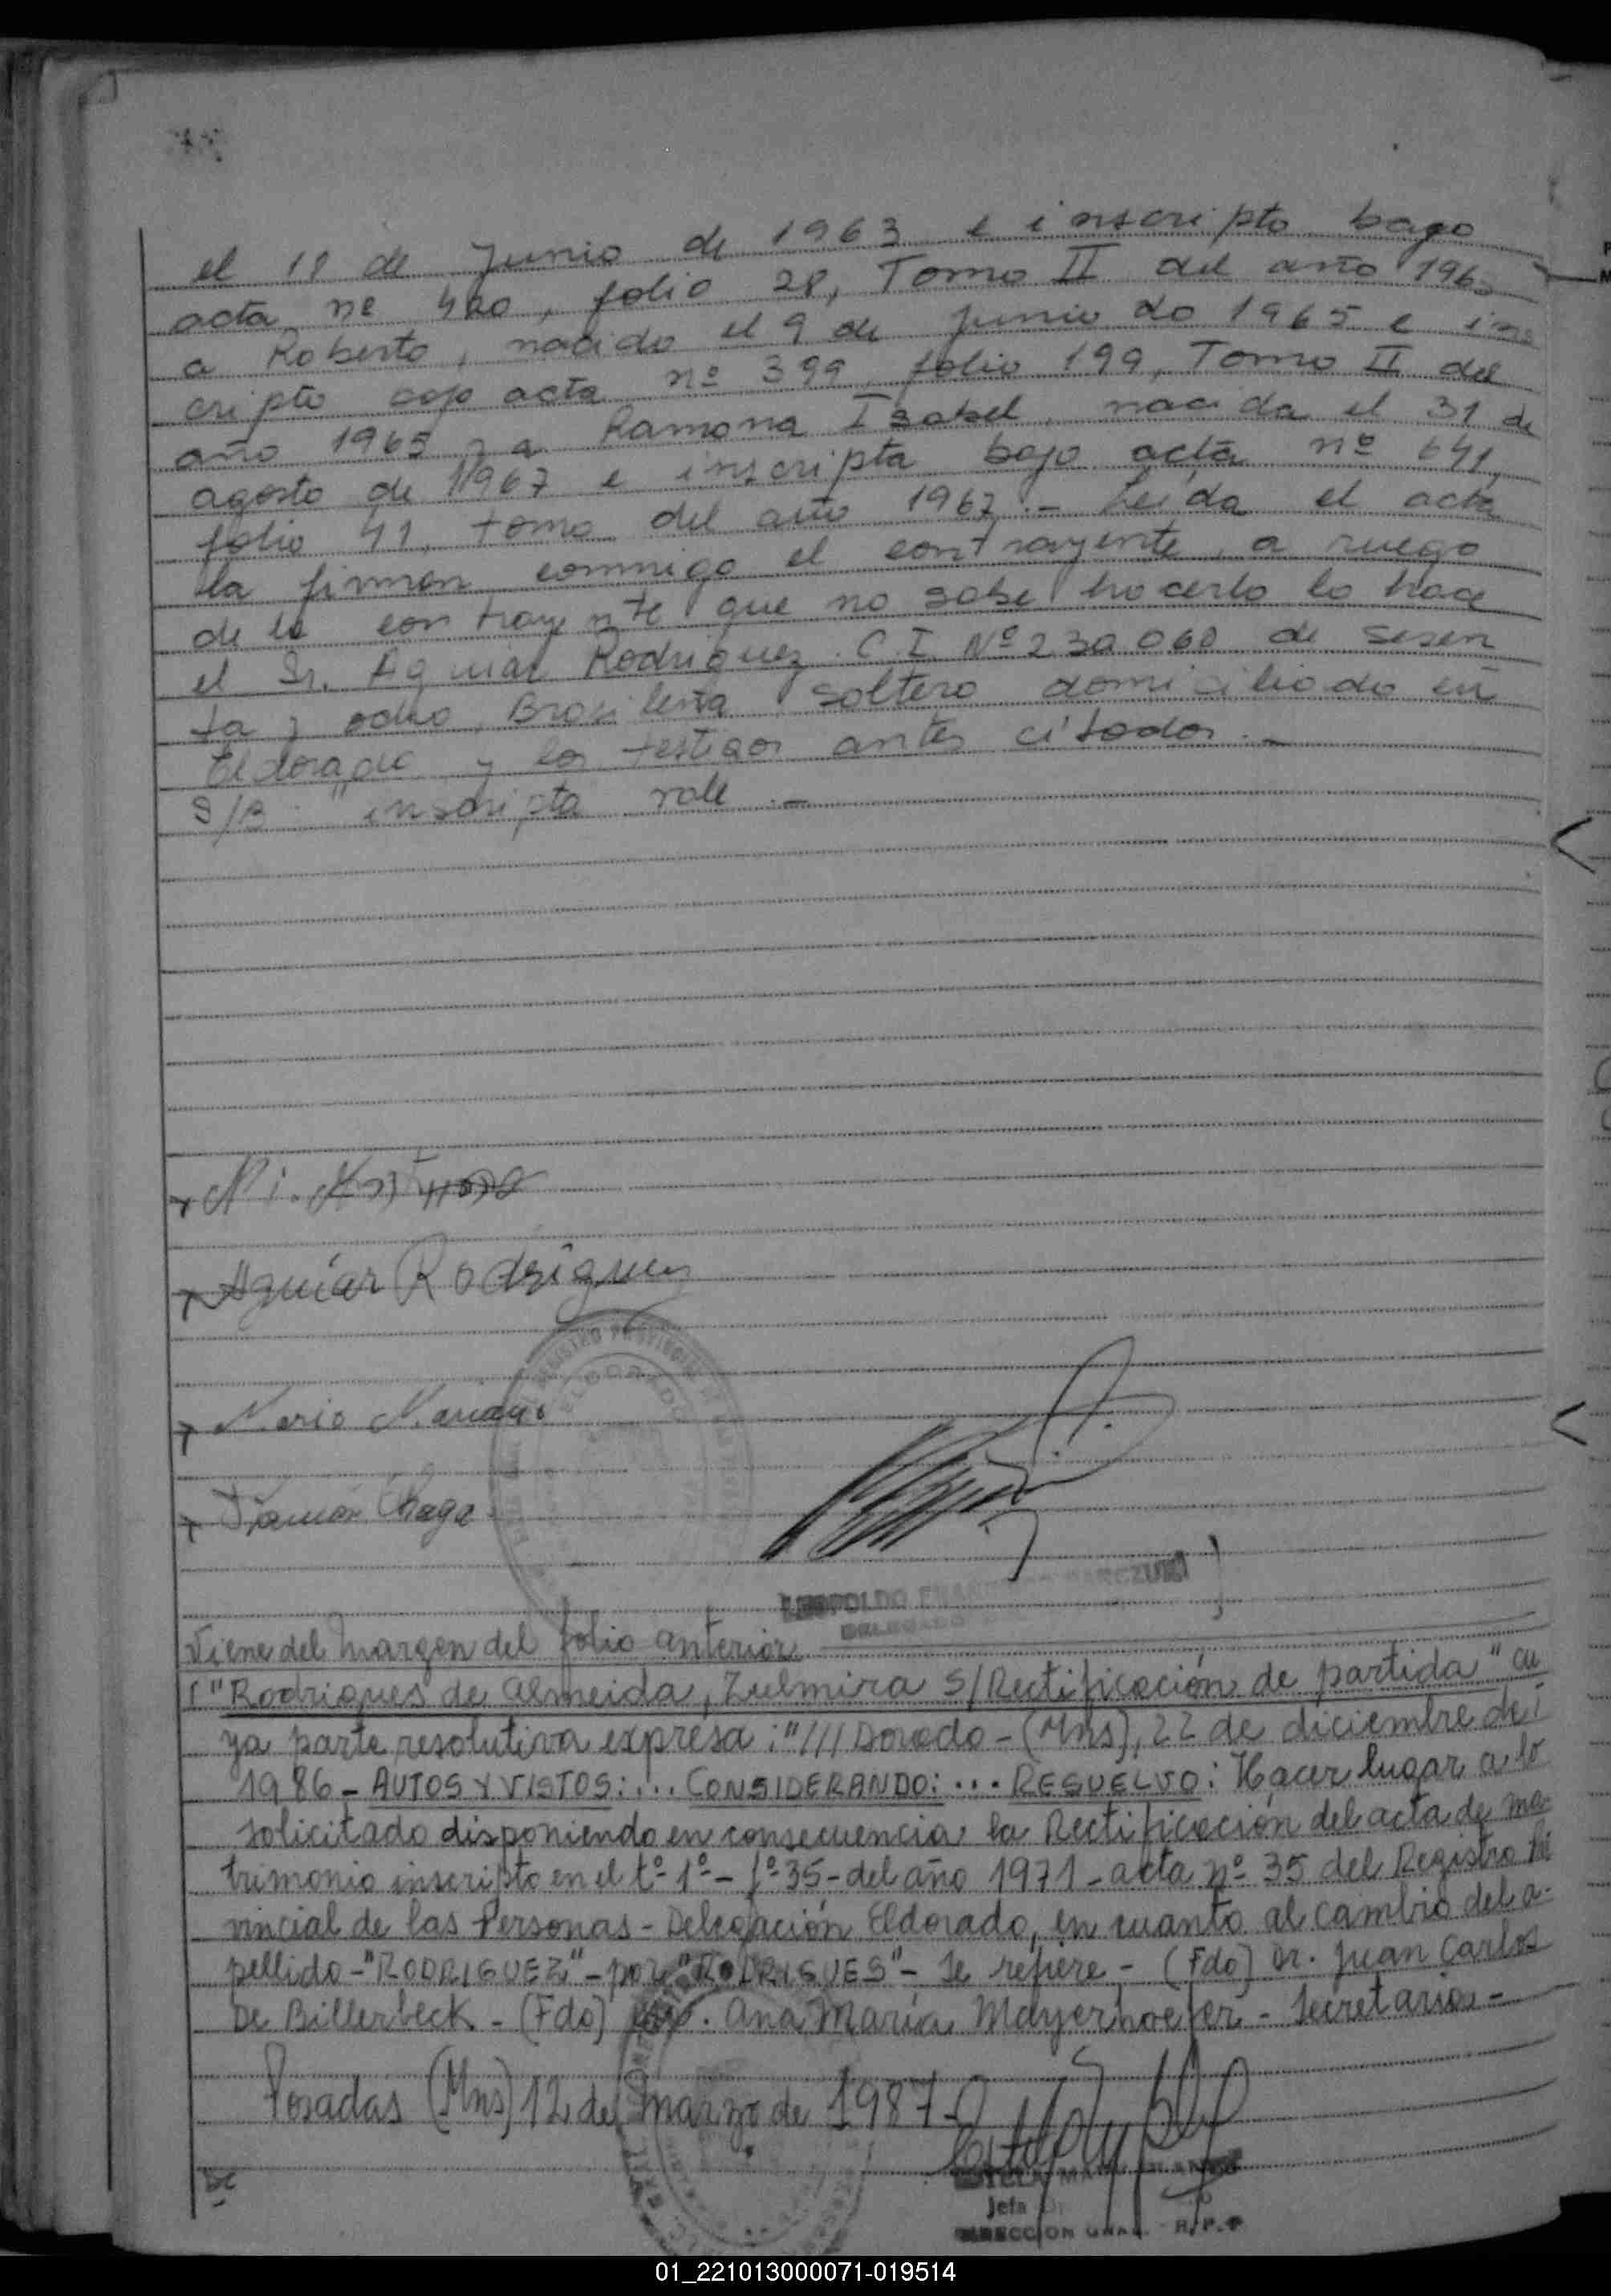 el 18 de Junio de 1963 e inscripto bago
acta nº 420, folio 28, Tomo II del año 196
a Roberto, nacido el 9 de Junio do 1965 e ins
cripto bajo acta nº 399, folio 199, Tomo II del
año 1965 y a Ramona Isabel, nacida el 31 de
agosto de 1967 e inscripta bajo acta nº 641,
folio 41, tomo del año 1967.- Leída el acta
la firman conmigo el contrayente, a ruego
de la contrayente que no sabe hacerlo lo hace
el Sr. Aguiar Rodriguez C.I. Nº 230060 de sesen
ta y ocho, Brasileña soltero domiciliado en
Eldorado y los testigos antes citados.-
S/B: "inscripta vale.-
Aguiar Rodriguez
Ramón Chaga
LEOPOLDO
DELEGADO
Viene del margen del folio anterior
"Rodrigues de Almeida, Zulmira S/Rectificación de partida" cu
ya parte resolutiva expresa: "///Dorado - (Mns), 22 de diciembre de
1986 - AUTOS Y VISTOS: ... CONSIDERANDO: ... RESUELVO: Hacer lugar a lo
solicitado disponiendo en consecuencia la Rectificación del acta de ma-
trimonio inscripto en el tº 1º - fº 35 - del año 1971 - acta nº 35 del Registro Pro
vincial de las Personas - Delegación Eldorado, en cuanto al cambio del a-
pellido - "RODRIGUEZ" - por "RODRIGUES" - Se refiere - (Fdo) Dr. Juan Carlos
De Billerbeck. - (Fdo) . Ana María Mayerhoefer - Secretaria -
Posadas (Mns) 12 de marzo de 1987 -
Jefa
DIRECCION GRAL. R.P.P
01_221013000071-019514